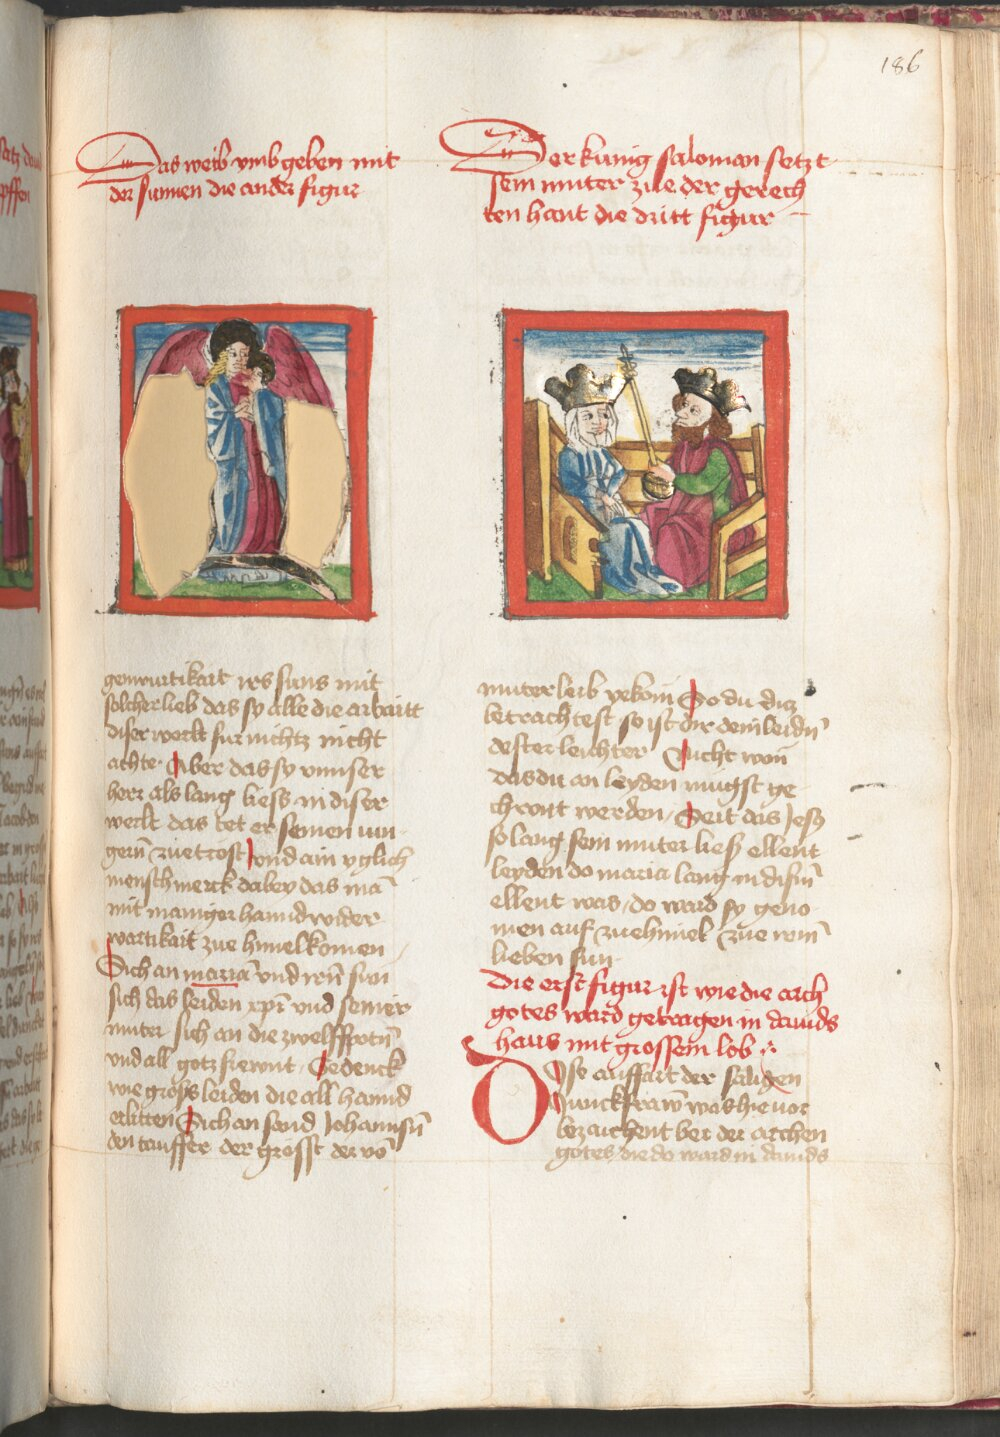 186
Das weib vmbgeben mit
der sunnen die ander figur
Der kunig saloman setzt
sein muter zue der gerech
ten hant die dritt figur
genwurtikait irs suns mit
solcher lieb das sy alle die arbaitt
diser welt fur nichtz nicht
achte Aber das sy vnnser
herr als lang liess in diser
welt das tet er seinen iun
gern zue trost vnd ain yglich
mensch merck dabey das mā
mit maniger hannd wider
wartikait zue himel komen
Sich an mariā vnd irn̄ sun
sich das leiden xp̄i vnd seiner
muter sich an die zwelffpotn̄
vnd all gotz frewnt Gedenck
wie gross leiden die all hannd
erlitten Sich an sand Johannsn̄
den tauffer der grösst der vō
muter leib ye kom So du ditz
betrachtest so ist dir dein leidn̄
dester leichter Nicht won
das du an leyden mügst ge
chront werden Seit das Jesus
so lang sein muter liess ellent
leyden do maria lang in dism̄
ellent was do ward sy geno
men auf zue himel zue irm̄
lieben sun
Die erst figur ist wie die arch
gotes ward getragen in dauids
haus mit grossem lob
Dise auffart der säligen
Junckfrawn̄ was hie vor
bezaichent bei der archen
gotes die do ward in dauids